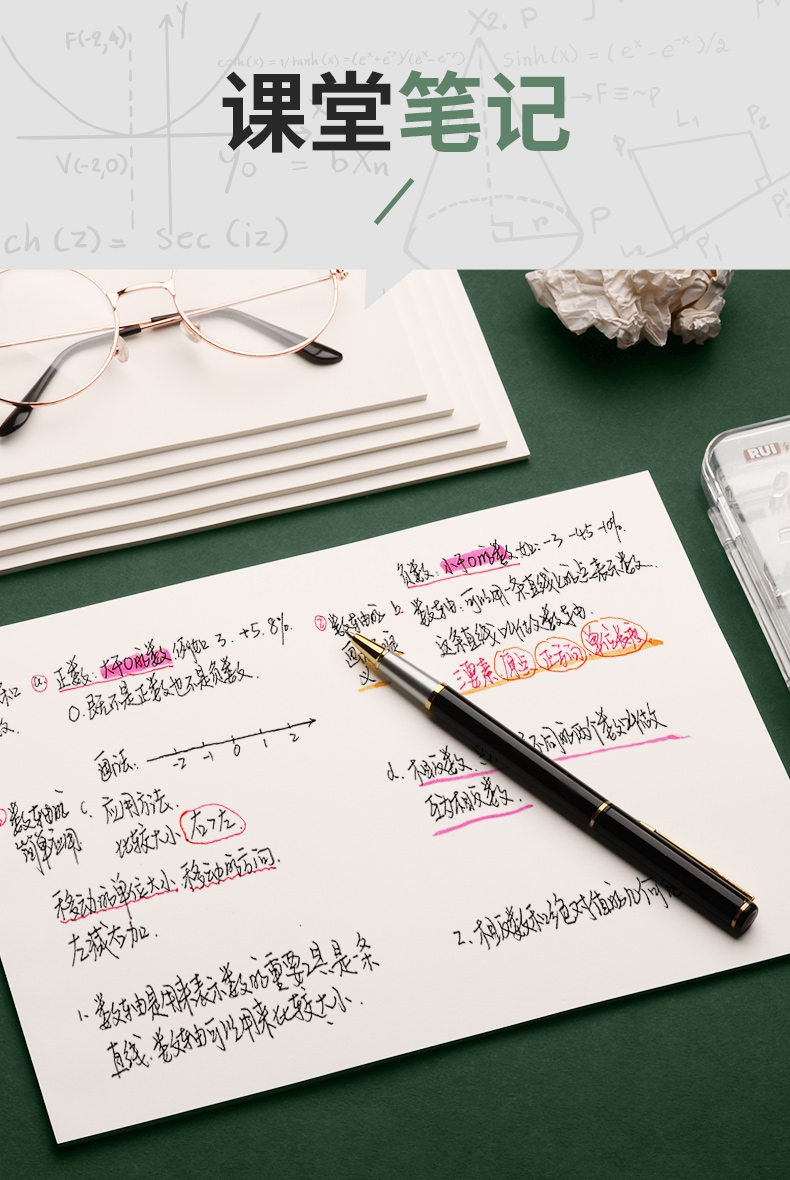 F(-2,4)
Y
X2. P
sinh(x) = (eˣ-e⁻ˣ)/2
课堂笔记
→F≡~p
L₁
P₂
V(-2,0)
Y₀ = bXn
r
P
P'₁
ch(z) = sec(iz)
RUI
负数:小于0的数 如:-3 -45 -1%.
ⓐ 正数:大于0的数 例如 3. +5.8%.
0.既不是正数也不是负数.
数轴:可以用一条直线上的点表示数.
这条直线叫做数轴.
三要素 原点 正方向 单位长度
画法:
-2 -1 0 1 2
d. 相反数.
不同的两个数叫做
互为相反数.
数轴的
简单应用
c. 应用方法.
比较大小 右>左.
移动的单位大小.移动的方向.
左减右加.
1. 数轴是用来表示数的重要工具.是一条
直线.数轴可以用来比较大小.
2. 相反数和绝对值的几何